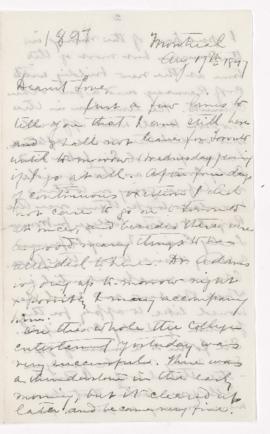 1897
Montreal
Aug 17th 1897
Dearest Love,
Just a few lines to
tell you that I am still here
and shall not leave for Toronto
until to-morrow (Wednesday) evening
if I go at all. After four days
of continuous exertion I did
not care to go on to Toronto
at once, and besides there are
a good many things to be
attended to here. Dr Adams
only up to-morrow night
I may accompany
him.
On the whole the College
entertainment yesterday was
very successful. There was
a thunderstorm in the early
morning but it cleared up
later and became very fine.